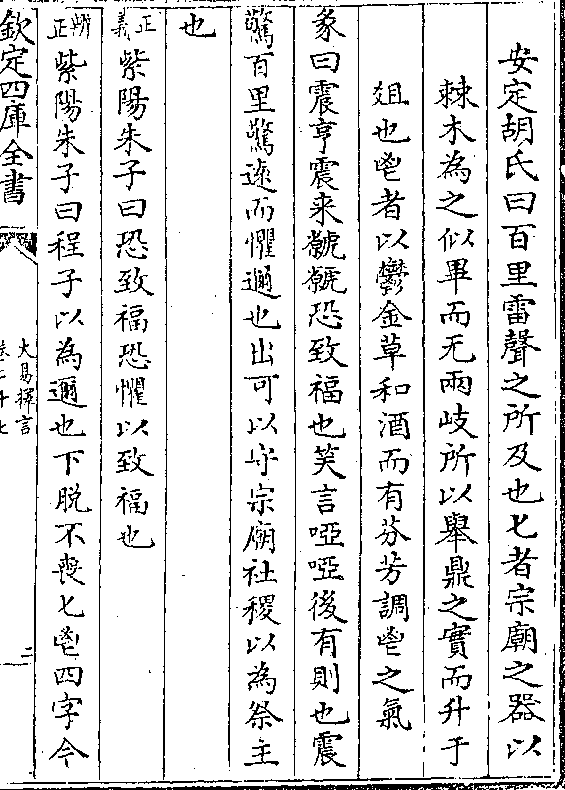 安定胡氏曰百里雷聲之所及也匕者宗廟之器以
棘木為之似畢而无兩岐所以舉鼎之實而升于
俎也鬯者以鬱金草和酒而有芬芳調鬯之氣
彖曰震亨震来虩虩恐致福也笑言啞啞後有則也震
驚百里驚遠而懼邇也出可以守宗廟社稷以為祭主
也
正義紫陽朱子曰恐致福恐懼以致福也
辨正紫陽朱子曰程子以為邇也下脱不喪匕鬯四字今
欽定四庫全書
大易擇言
二